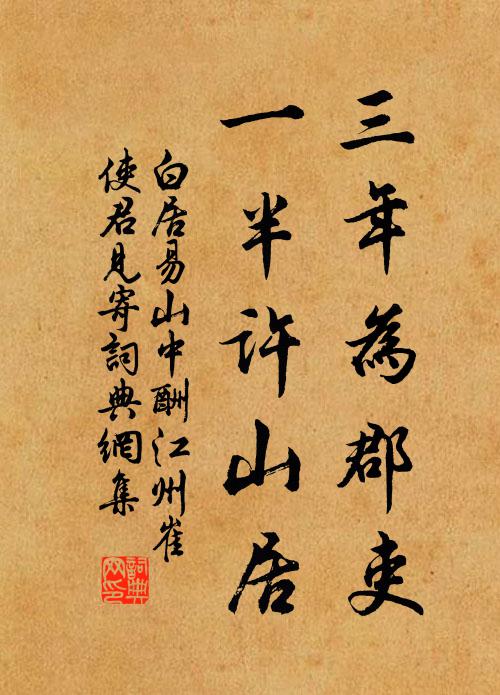 三年為郡吏
一半許山居
白居易山中酬江州崔
使君見寄詞典網集
詞典网印